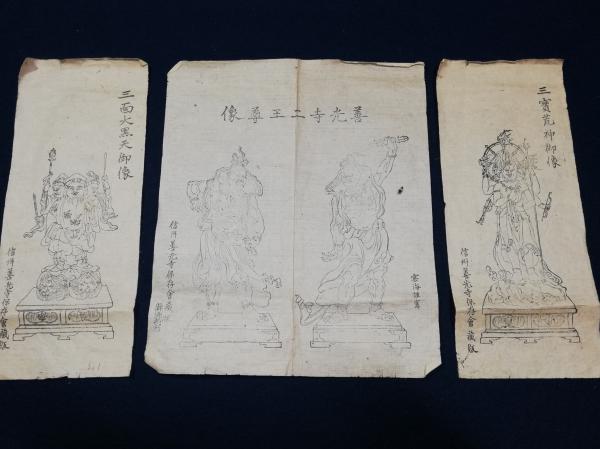 三面大黑天御像
信州善光寺保存會藏版
善光寺二王尊像
信州善光寺保存會藏
雲海謹寫
三寶荒神御像
信州善光寺保存會藏版